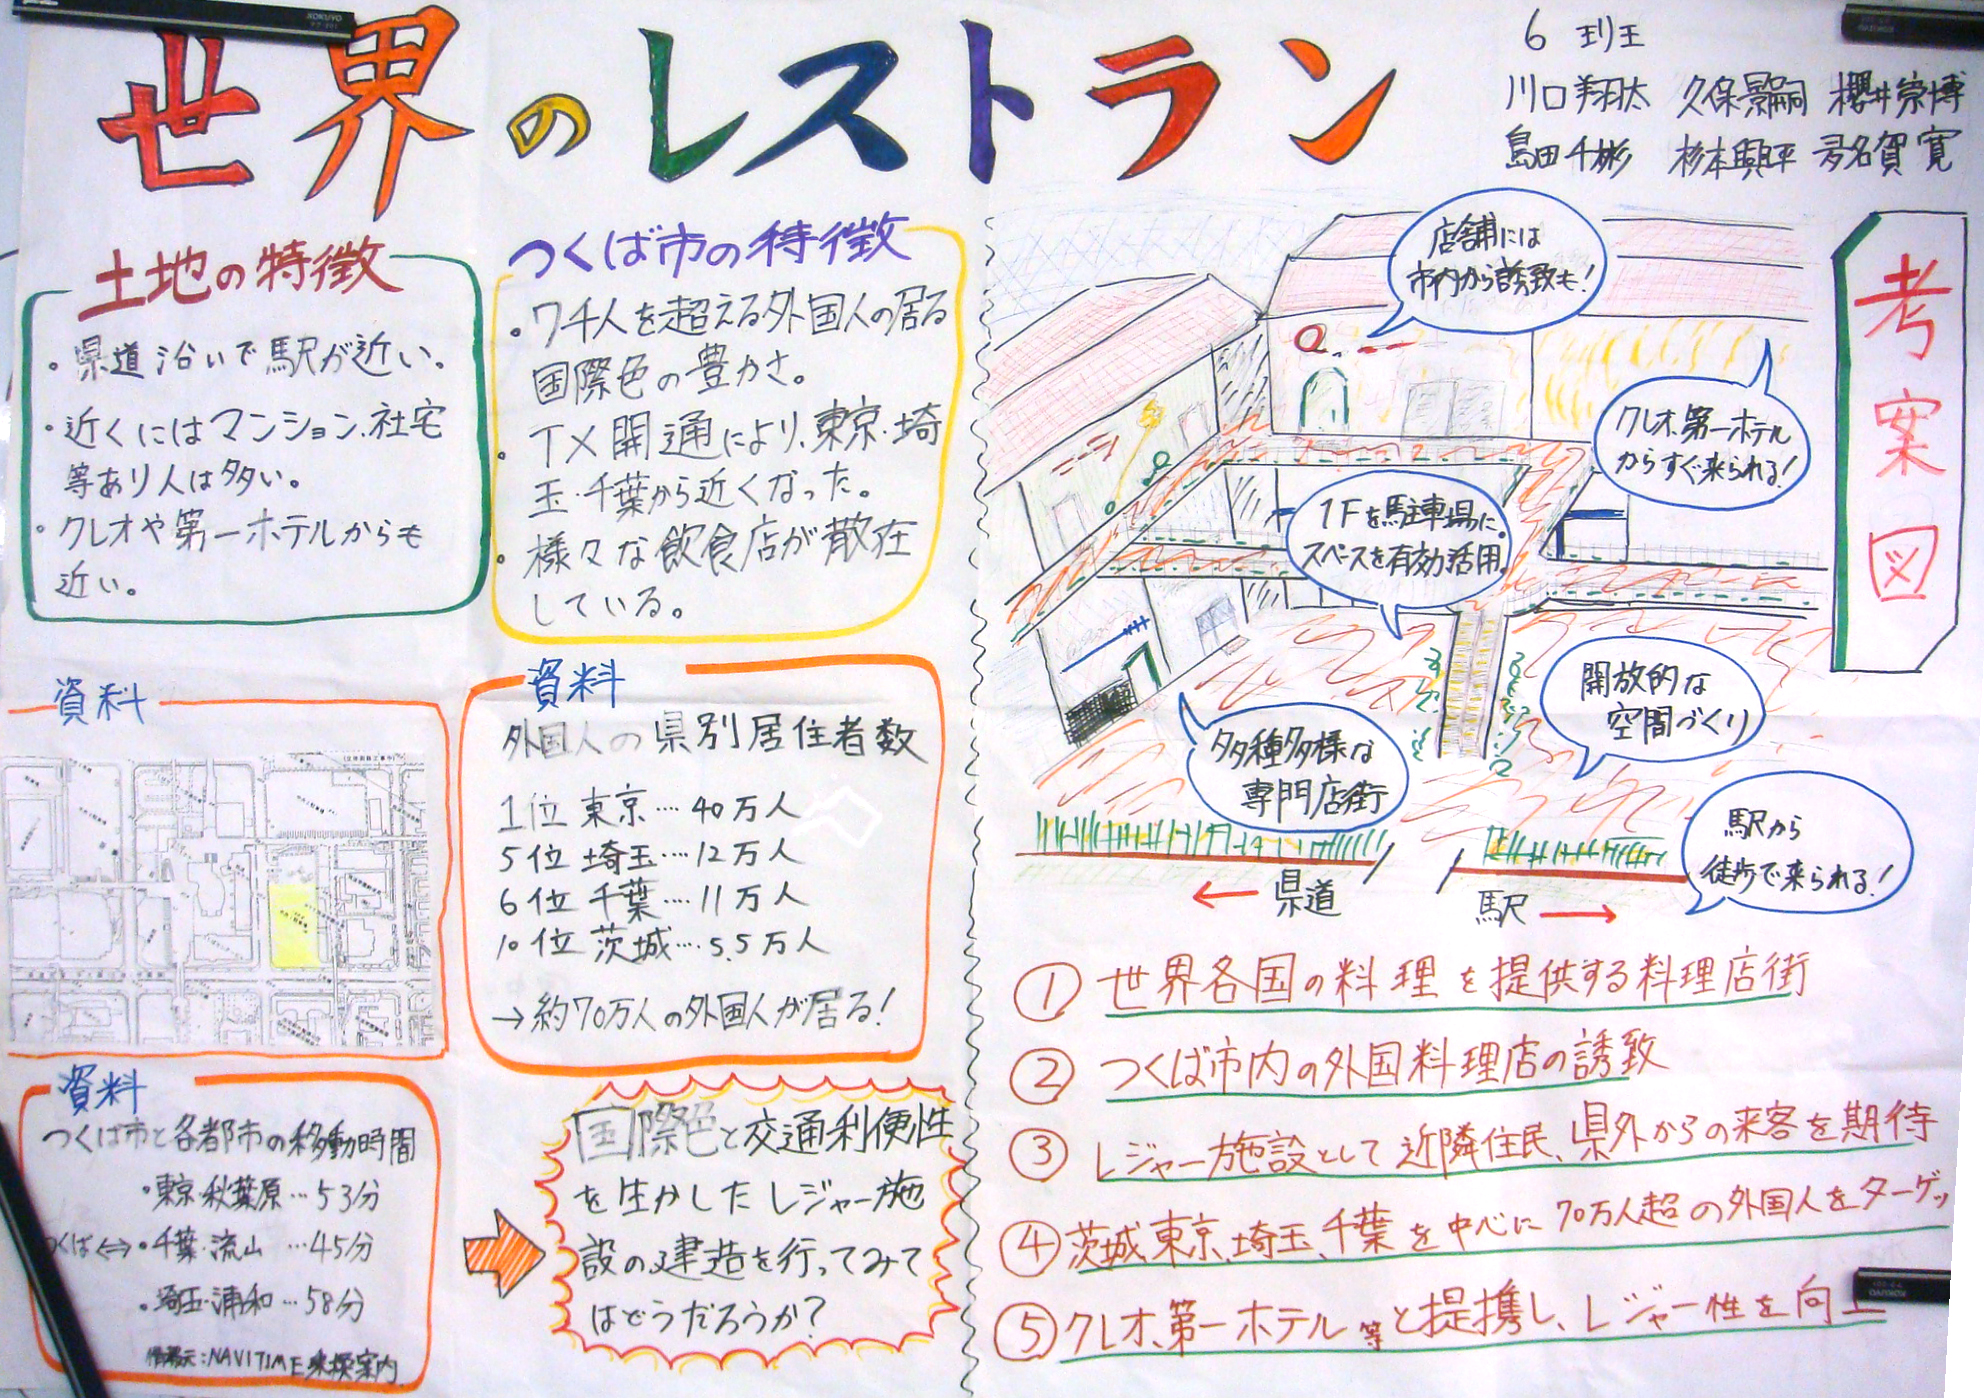 世界のレストラン
6 班
川口翔太 久保景嗣 櫻井崇博
島田千彬 杉本興平 名賀寛
土地の特徴
・県道沿いで駅が近い。
・近くにはマンション、社宅
等あり人は多い。
・クレオや第一ホテルからも
近い。
つくば市の特徴
・7千人を超える外国人の居る
国際色の豊かさ。
・TX開通により、東京・埼
玉・千葉から近くなった。
・様々な飲食店が散在
している。
資料
資料
外国人の県別居住者数
1位 東京…40万人
5位 埼玉…12万人
6位 千葉…11万人
10位 茨城…5.5万人
→約70万人の外国人が居る!
資料
つくば市と各都市の移動時間
・東京・秋葉原…53分
つくば⇔・千葉・流山…45分
・埼玉・浦和…58分
:NAVITIME乗換案内
国際色と交通利便性
を生かしたレジャー施
設の建造を行ってみて
はどうだろうか?
考案図
店舗には
市内から誘致も!
クレオ、第一ホテル
からすぐ来られる!
1Fを駐車場に。
スペースを有効活用。
開放的な
空間づくり
多種多様な
専門店街
駅から
徒歩で来られる!
← 県道
駅 →
① 世界各国の料理を提供する料理店街
② つくば市内の外国料理店の誘致
③ レジャー施設として近隣住民、県外からの来客を期待
④ 茨城、東京、埼玉、千葉を中心に70万人超の外国人をターゲッ
⑤ クレオ、第一ホテル等と提携し、レジャー性を向上